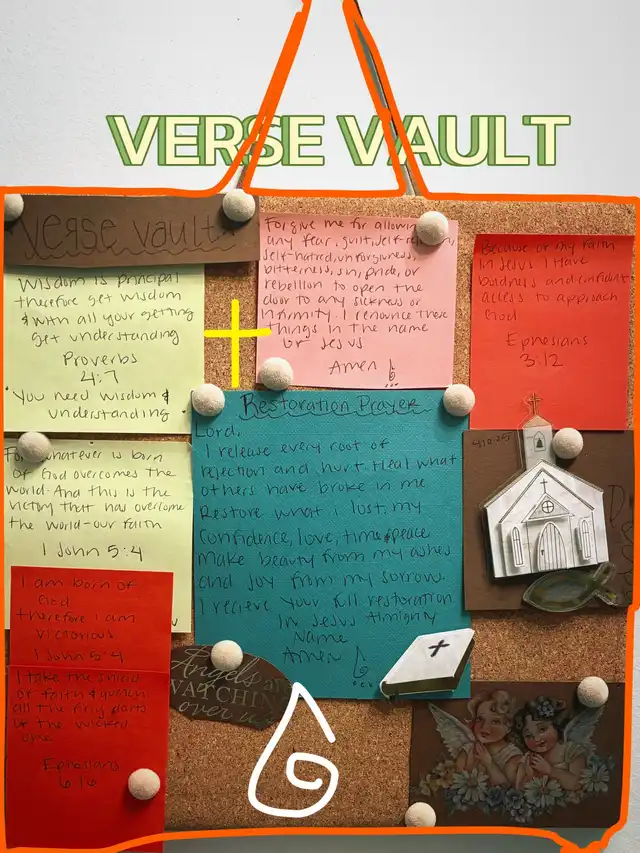 VERSE VAULT
verse vault
Wisdom is principal
therefore get wisdom
& with all your getting
get understanding
Proverbs
4:7
"You need wisdom &
understanding"
Forgive me for allowing
any fear, guilt, self-
self-hatred, unforgivness,
bitterness, sin, pride, or
rebellion to open the
door to any sickness or
infirmity. I renounce these
things in the name
of Jesus
Amen
Because of my Faith
in Jesus I Have
boldness and confident
access to approach
God
Ephesians
3:12
For whatever is born
of God overcomes the
world. And this is the
victory that has overcome
the world-our faith
1 John 5:4
I am born of
God
therefore I am
victorious
1 John 5:4
I take the shield
of faith & quench
all the firy darts
of the wicked
one
Ephesians
6:16
Restoration Prayer
Lord,
I release every root of
rejection and hurt. Heal what
others have broke in me
Restore what I lost, my
confidence, love, time & peace
make beauty from my ashes
and joy from my sorrow.
I recieve your full restoration
In Jesus Almighty
Name
Amen
Angels
WATCHIN
over us